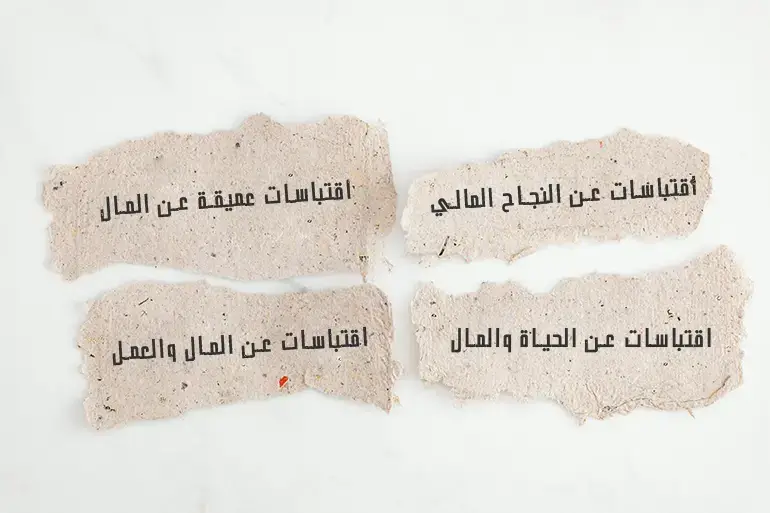 أقتباسات عن النجاح المالي
اقتباسات عميقة عن المال
اقتباسات عن الحياة والمال
اقتباسات عن المال والعمل